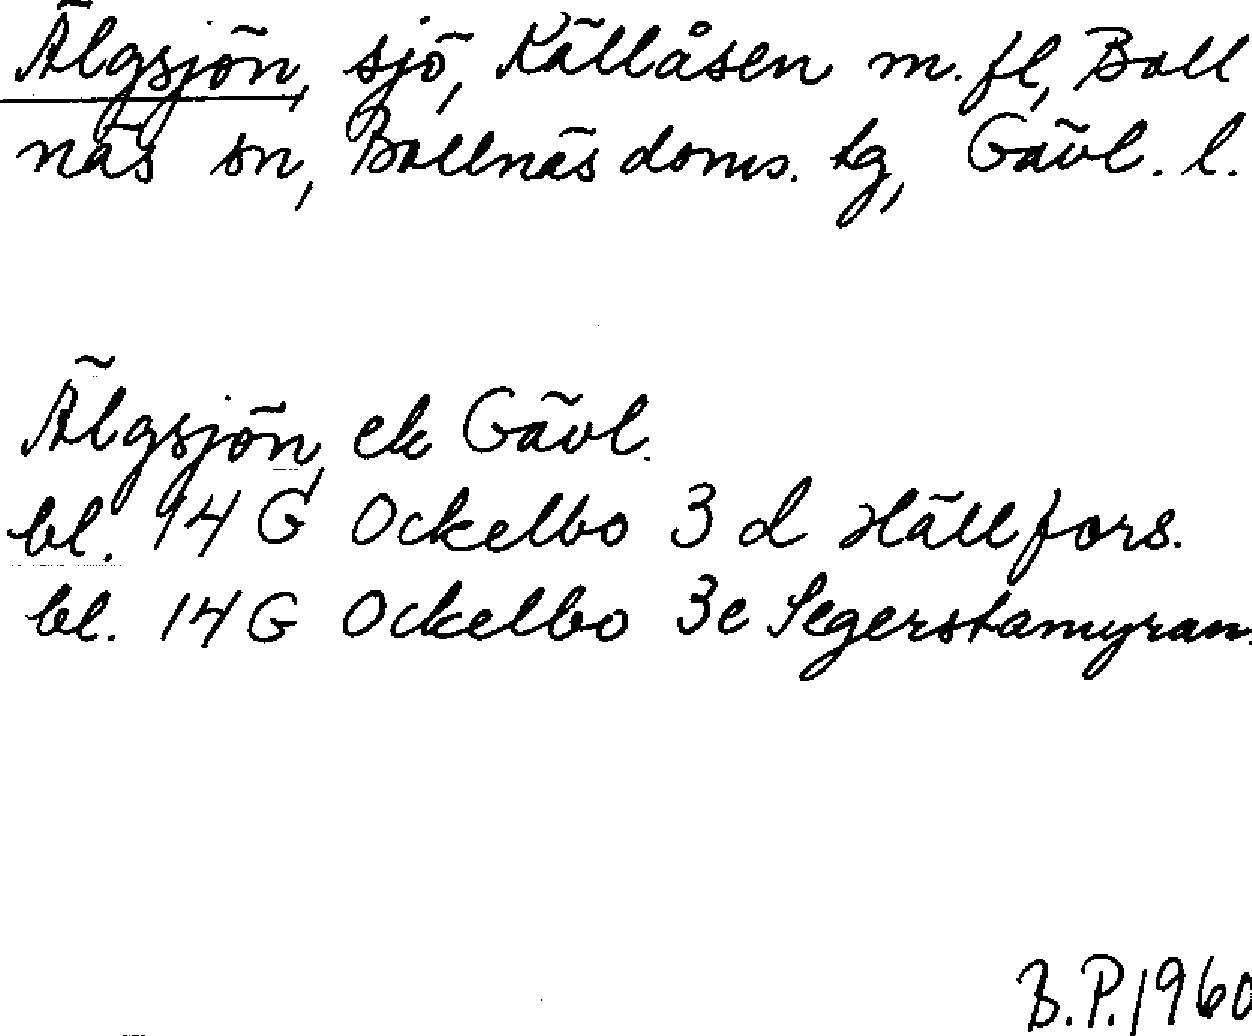 Älgsjön, sjö, Källåsen m.fl, Boll
näs sn, Bollnäs doms. tg, Gävl. l.
Älgsjön, ek Gävl.
bl. 14 G Ockelbo 3 d Hällfors.
bl. 14 G Ockelbo 3e Segerstamyran.
B.P. 1960